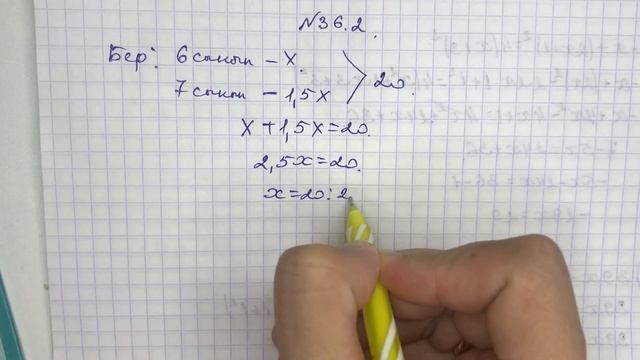 №36.2.
Бер: 6 сынып – x.
7 сынып – 1,5x
20.
x+1,5x=20.
2,5x=20.
x=20:2